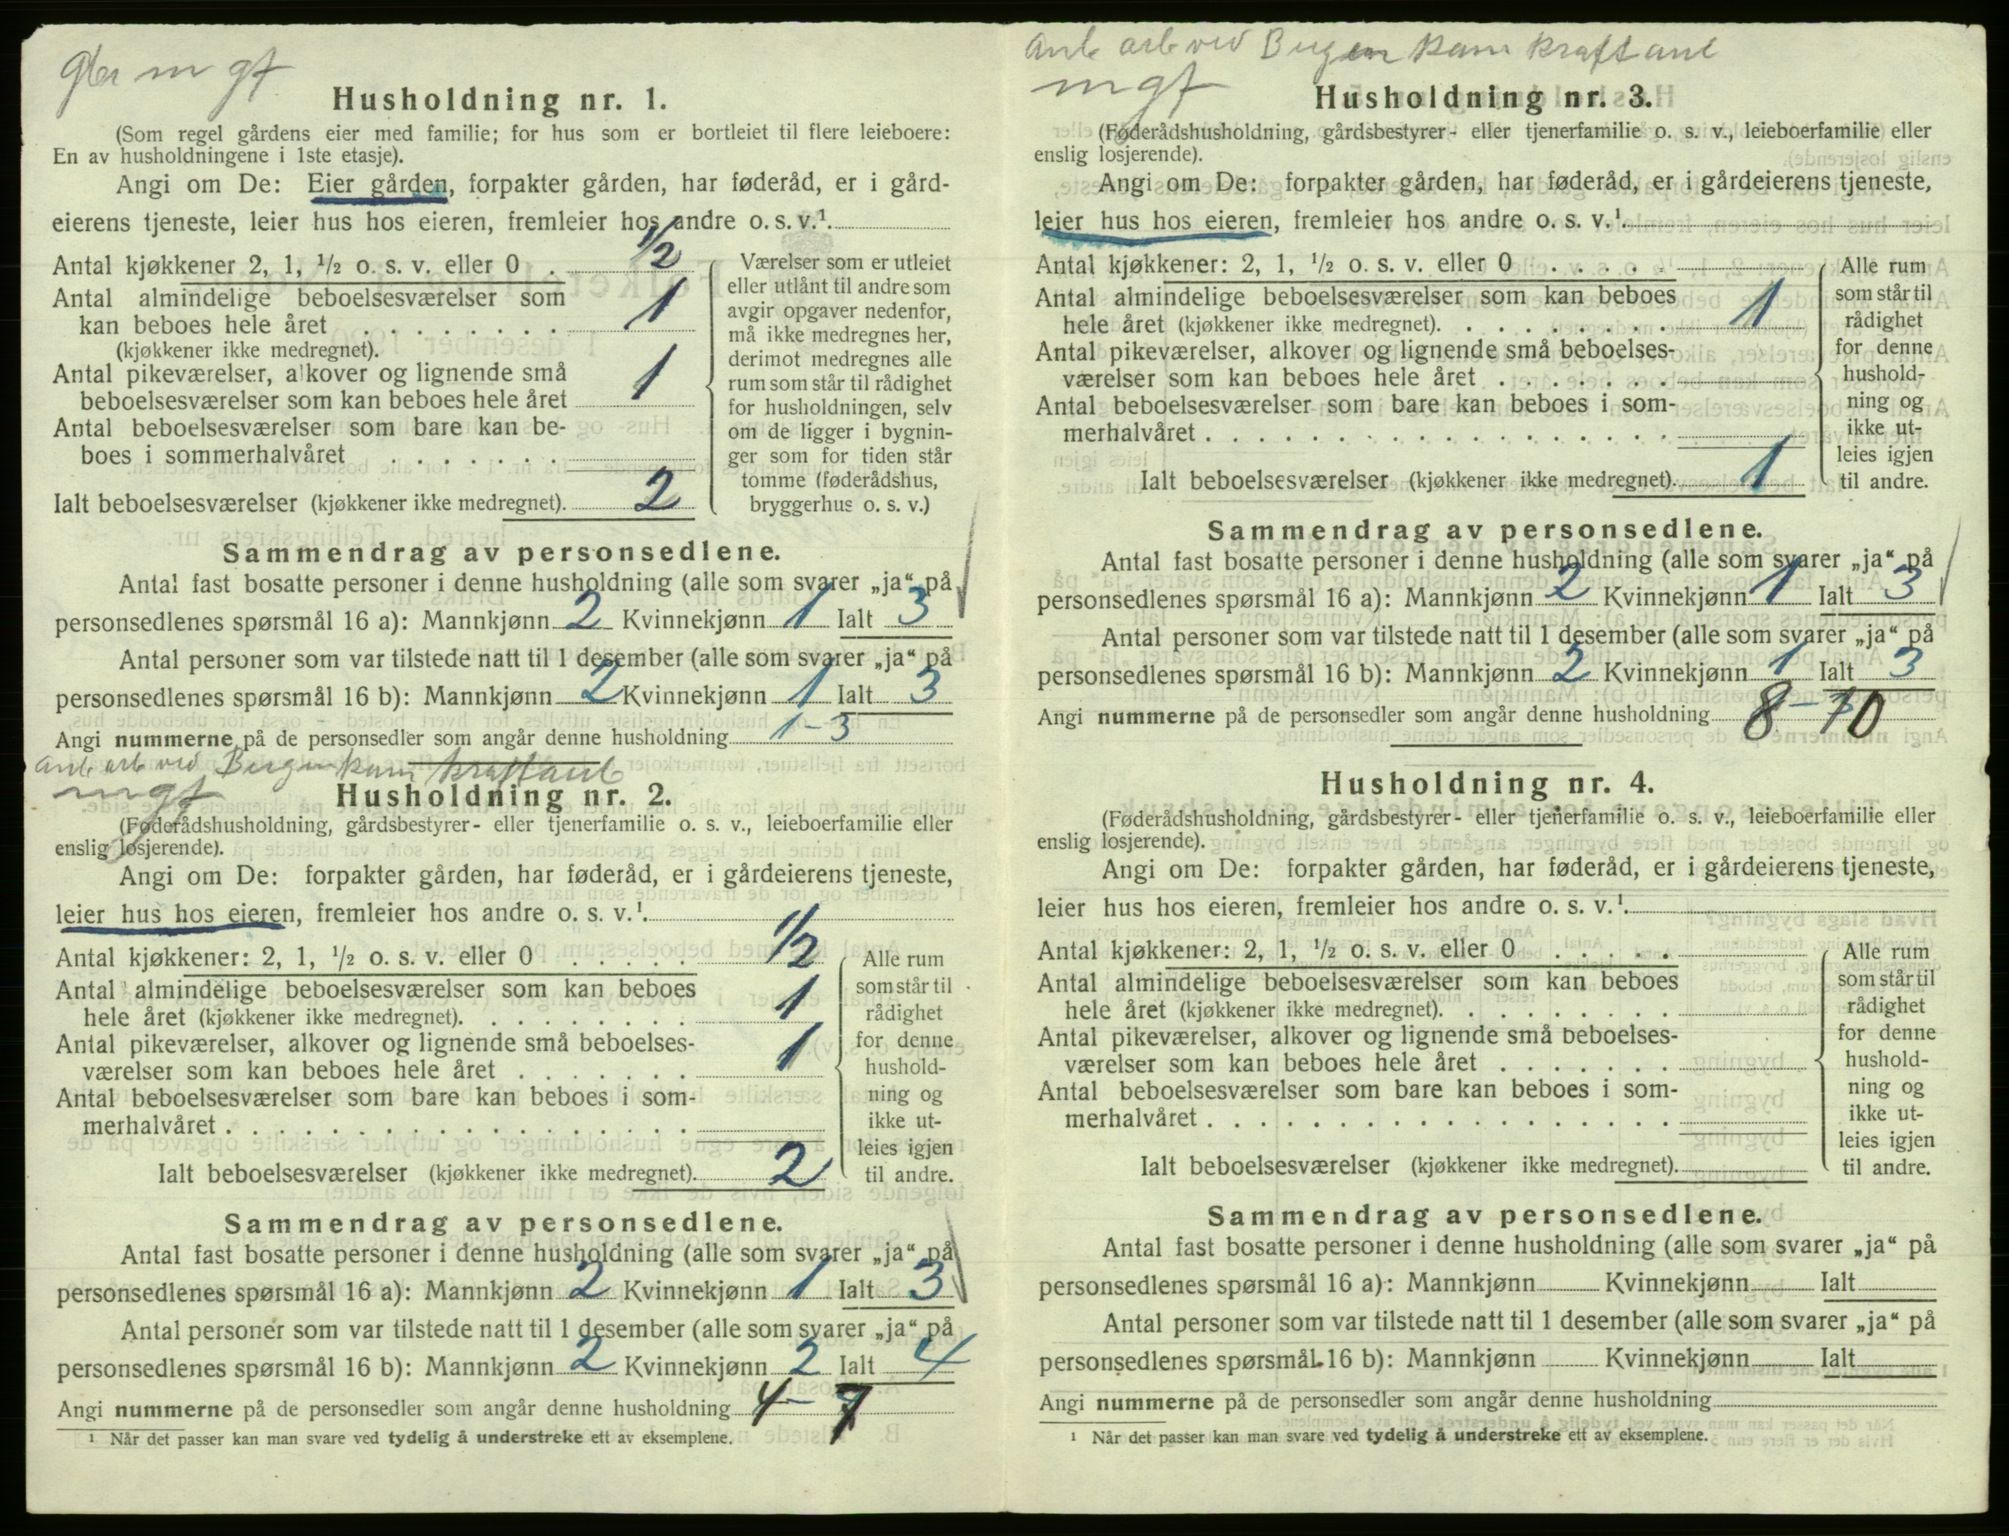 m gf
Husholdning nr. 1.
(Som regel gårdens eier med familie; for hus som er bortleiet til flere leieboere:
En av husholdningene i 1ste etasje).
Angi om De: Eier gården, forpakter gården, har føderåd, er i gård-
eierens tjeneste, leier hus hos eieren, fremleier hos andre o. s. v.¹
Antal kjøkkener 2, 1, ½ o. s. v. eller 0 . ½
Antal almindelige beboelsesværelser som
kan beboes hele året . . . . . . . . 1
(kjøkkener ikke medregnet).
Antal pikeværelser, alkover og lignende små
beboelsesværelser som kan beboes hele året 1
Antal beboelsesværelser som bare kan be-
boes i sommerhalvåret . . . . . . .
Ialt beboelsesværelser (kjøkkener ikke medregnet). 2
Værelser som er utleiet
eller utlånt til andre som
avgir opgaver nedenfor,
må ikke medregnes her,
derimot medregnes alle
rum som står til rådighet
for husholdningen, selv
om de ligger i bygnin-
ger som for tiden står
tomme (føderådshus,
bryggerhus o. s. v.)
Sammendrag av personsedlene.
Antal fast bosatte personer i denne husholdning (alle som svarer „ja“ på
personsedlenes spørsmål 16 a): Mannkjønn 2 Kvinnekjønn 1 Ialt 3
Antal personer som var tilstede natt til 1 desember (alle som svarer „ja“ på
personsedlenes spørsmål 16 b): Mannkjønn 2 Kvinnekjønn 1 Ialt 3
Angi nummerne på de personsedler som angår denne husholdning 1-3
Anl arb ved Bergen kom kraftanl
mgf
Husholdning nr. 2.
(Føderådshusholdning, gårdsbestyrer- eller tjenerfamilie o. s. v., leieboerfamilie eller
enslig losjerende).
Angi om De: forpakter gården, har føderåd, er i gårdeierens tjeneste,
leier hus hos eieren, fremleier hos andre o. s. v.¹
Antal kjøkkener: 2, 1, ½ o. s. v. eller 0 . . . . . ½
Antal almindelige beboelsesværelser som kan beboes
hele året (kjøkkener ikke medregnet). . . . . . . . . 1
Antal pikeværelser, alkover og lignende små beboelses-
værelser som kan beboes hele året . . . . . . . 1
Antal beboelsesværelser som bare kan beboes i som-
merhalvåret . . . . . . . . . . . . . . . . . .
Ialt beboelsesværelser (kjøkkener ikke medregnet). 2
Alle rum
som står til
rådighet
for denne
hushold-
ning og
ikke ut-
leies igjen
til andre.
Sammendrag av personsedlene.
Antal fast bosatte personer i denne husholdning (alle som svarer „ja“ på
personsedlenes spørsmål 16 a): Mannkjønn 2 Kvinnekjønn 1 Ialt 3
Antal personer som var tilstede natt til 1 desember (alle som svarer „ja“ på
personsedlenes spørsmål 16 b): Mannkjønn 2 Kvinnekjønn 2 Ialt 4
Angi nummerne på de personsedler som angår denne husholdning 4-7
¹ Når det passer kan man svare ved tydelig å understreke ett av eksemplene.
Anl arb ved Bergen kom kraftanl
mgf
Husholdning nr. 3.
(Føderådshusholdning, gårdsbestyrer- eller tjenerfamilie o. s. v., leieboerfamilie eller
enslig losjerende).
Angi om De: forpakter gården, har føderåd, er i gårdeierens tjeneste,
leier hus hos eieren, fremleier hos andre o. s. v.¹
Antal kjøkkener: 2, 1, ½ o. s. v. eller 0 . . . . .
Antal almindelige beboelsesværelser som kan beboes
hele året (kjøkkener ikke medregnet). . . . . . . . . 1
Antal pikeværelser, alkover og lignende små beboelses-
værelser som kan beboes hele året . . . . . . .
Antal beboelsesværelser som bare kan beboes i som-
merhalvåret . . . . . . . . . . . . . . . . . .
Ialt beboelsesværelser (kjøkkener ikke medregnet). 1
Alle rum
som står til
rådighet
for denne
hushold-
ning og
ikke ut-
leies igjen
til andre.
Sammendrag av personsedlene.
Antal fast bosatte personer i denne husholdning (alle som svarer „ja“ på
personsedlenes spørsmål 16 a): Mannkjønn 2 Kvinnekjønn 1 Ialt 3
Antal personer som var tilstede natt til 1 desember (alle som svarer „ja“ på
personsedlenes spørsmål 16 b): Mannkjønn 2 Kvinnekjønn 1 Ialt 3
Angi nummerne på de personsedler som angår denne husholdning 8-10
Husholdning nr. 4.
(Føderådshusholdning, gårdsbestyrer- eller tjenerfamilie o. s. v., leieboerfamilie eller
enslig losjerende).
Angi om De: forpakter gården, har føderåd, er i gårdeierens tjeneste,
leier hus hos eieren, fremleier hos andre o. s. v.¹
Antal kjøkkener: 2, 1, ½ o. s. v. eller 0 . . . . .
Antal almindelige beboelsesværelser som kan beboes
hele året (kjøkkener ikke medregnet). . . . . . . . .
Antal pikeværelser, alkover og lignende små beboelses-
værelser som kan beboes hele året . . . . . . .
Antal beboelsesværelser som bare kan beboes i som-
merhalvåret . . . . . . . . . . . . . . . . . .
Ialt beboelsesværelser (kjøkkener ikke medregnet).
Alle rum
som står til
rådighet
for denne
hushold-
ning og
ikke ut-
leies igjen
til andre.
Sammendrag av personsedlene.
Antal fast bosatte personer i denne husholdning (alle som svarer „ja“ på
personsedlenes spørsmål 16 a): Mannkjønn Kvinnekjønn Ialt
Antal personer som var tilstede natt til 1 desember (alle som svarer „ja“ på
personsedlenes spørsmål 16 b): Mannkjønn Kvinnekjønn Ialt
Angi nummerne på de personsedler som angår denne husholdning
¹ Når det passer kan man svare ved tydelig å understreke ett av eksemplene.